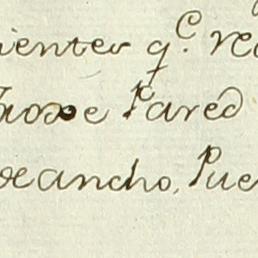 ientes q.e re
Jose Pared
de ancho, Pue